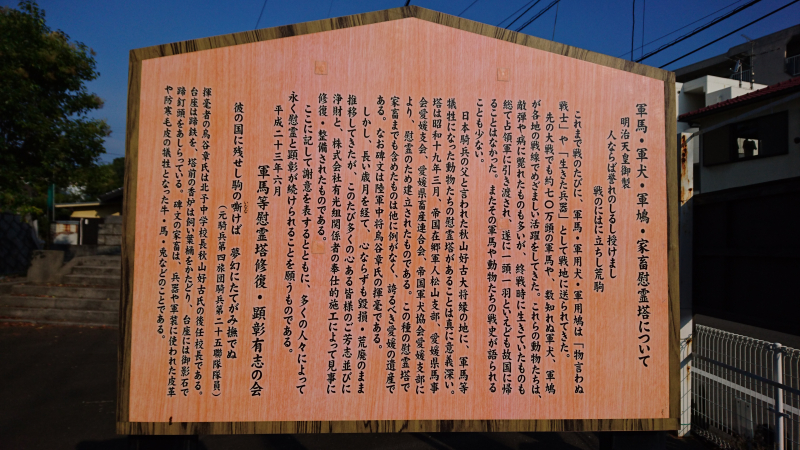 軍馬・軍犬・軍鳩・家畜慰霊塔について
明治天皇御製
人ならば誉れのしるし授けまし
戦のにはに立ちし荒駒
これまで戦のたびに、軍馬・軍用犬・軍用鳩は「物言わぬ
戦士」や「生きた兵器」として戦地に送られてきた。
先の大戦でも約七〇万頭の軍馬や、数知れぬ軍犬、軍鳩
が各地の戦線でめざましい活躍をしてきた。これらの動物たちは、
敵弾や病に斃れたものも多いが、終戦時に生きていたものも
総て占領軍に引き渡され、遂に一頭一羽といえども故国に帰
ることはなかった。またその軍馬や動物たちの戦史が語られる
ことも少ない。
日本騎兵の父と言われた秋山好古大将縁の地に、軍馬等
犠牲になった動物たちの慰霊塔があることは真に意義深い。
塔は昭和十九年三月、帝国在郷軍人松山支部、愛媛県馬事
会愛媛支会、愛媛県畜産連合会、帝国軍犬協会愛媛支部に
より、慰霊のため建立されたものである。この種の慰霊塔で
家畜までも含めたものは他に例がなく、誇るべき愛媛の遺産で
ある。なお碑文は陸軍中将烏谷章氏の揮毫である。
しかし、長い歳月を経て、心ならずも毀損・荒廃のまま
推移してきたが、このたび多くの心ある皆様のご芳志並びに
浄財と、株式会社有光組関係者の奉仕的施工によって見事に
修復・整備されたものである。
ここに記して謝意を表するとともに、多くの人々によって
永く慰霊と顕彰が続けられることを願うものである。
平成二十三年六月
軍馬等慰霊塔修復・顕彰有志の会
彼の国に残せし駒の嘶けば 夢幻にたてがみ撫でぬ
(元騎兵第四旅団騎兵第二十五聯隊隊員)
揮毫者の烏谷章氏は北予中学校長秋山好古氏の後任校長である。
台座は蹄鉄を、塔前の香炉は飼い葉桶をかたどり、台座には御影石で
蹄釘頭をあしらっている。碑文の家畜は、兵器や軍装に使われた皮革
や防寒毛皮の犠牲となった牛・馬・兎などのことである。